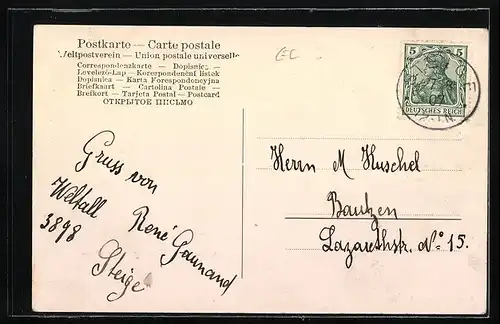 Postkarte — Carte postale
Weltpostverein — Union postale universelle
Correspondenzkarte — Dopisnica —
Levelező-Lap — Korespondenční listek
Dopisnica — Karta Korespondencyjna
Briefkaart — Cartolina Postale —
Brefkort — Tarjeta Postal — Postcard
ОТКРЫТОЕ ПИСЬМО
CEC
5 5
DEUTSCHES REICH
Gruss von
Weltall
3898
René
Steige
Herrn M Kuschel
Bautzen
Lazarethstr. No 15.